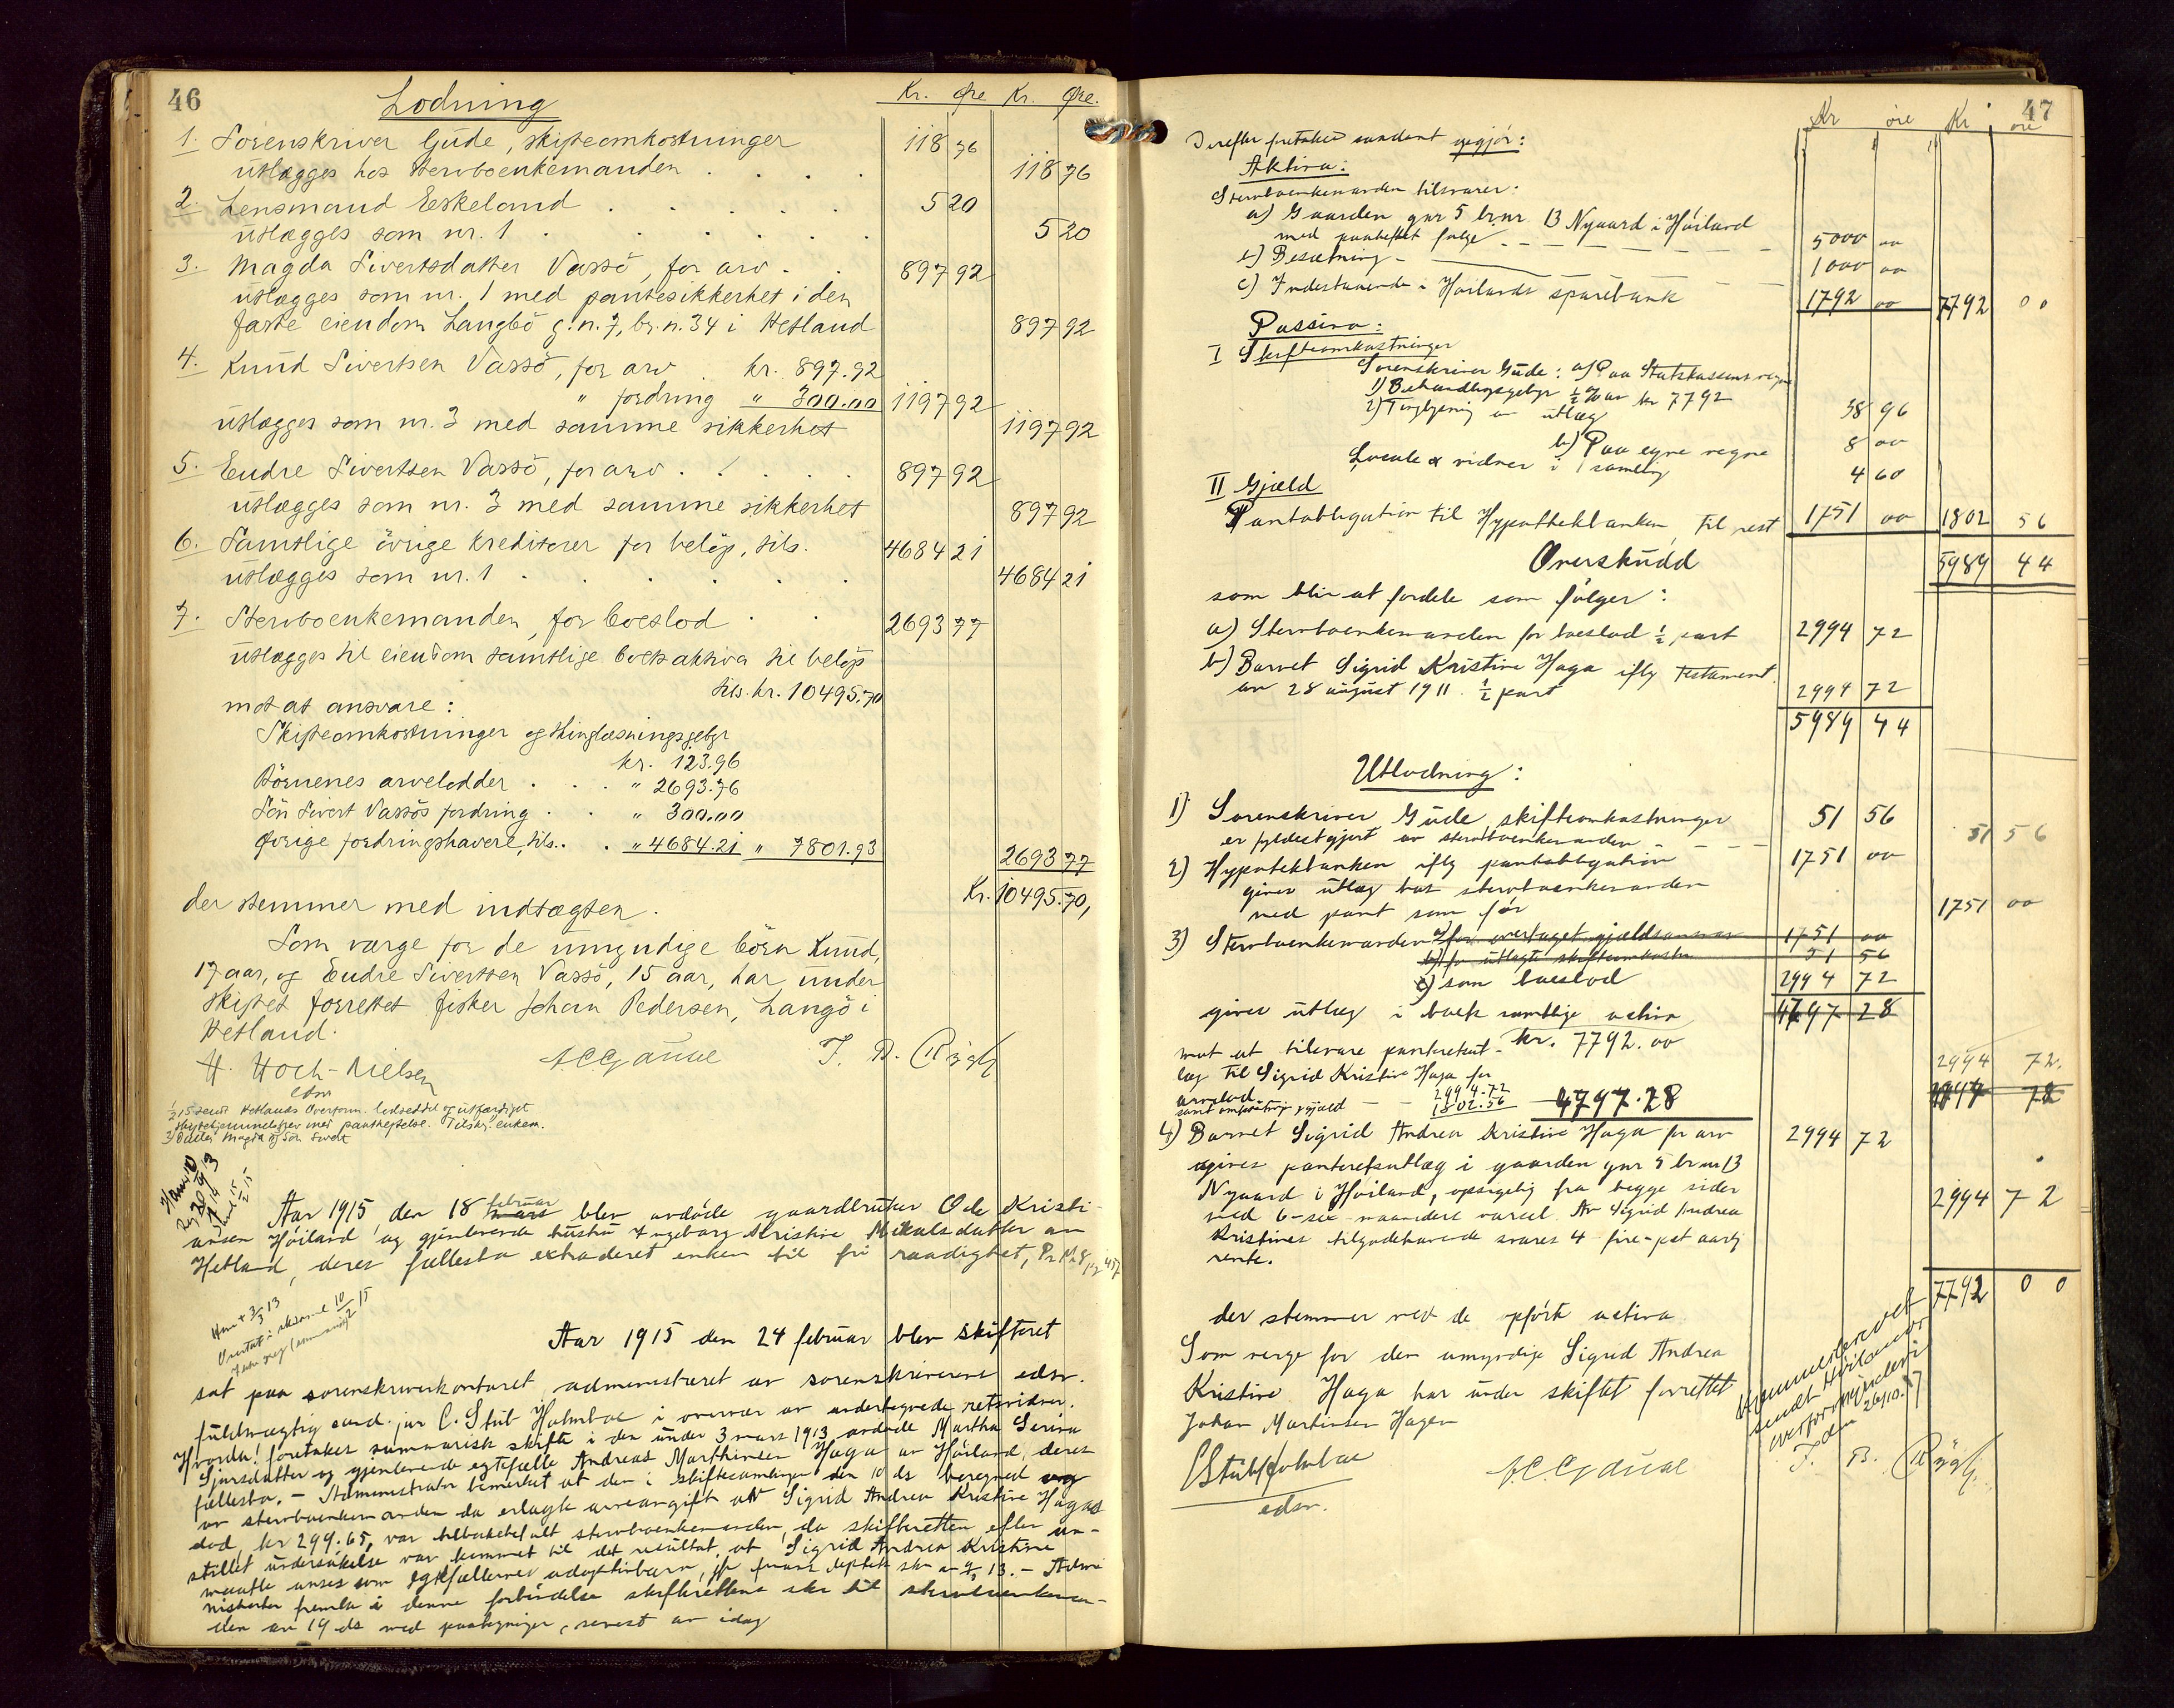 46
Lodning
Kr. Øre Kr. Øre.
1. Sorenskriver Gude, skifteomkostninger 118 76
utlægges hos Stervboenkemanden . . . . 118 76
2. Lensmand Eskeland . . . . . 5 20
utlægges som nr. 1 . . . . . 5 20
3. Magda Sivertsdatter Vassö, for arv . . 897 92
utlægges som nr. 1 med pantesikkerhet i den
faste eiendom Langbö g.n. 7, br.n. 34 i Hetland 897 92
4. Knud Sivertsen Vassö, for arv . kr. 897.92
" fordring " 300.00 1197 92
utlægges som nr. 3 med samme sikkerhet 1197 92
5. Endre Sivertsen Vassö, for arv . . . . . 897 92
utlægges som nr. 3 med samme sikkerhet 897 92
6. Samtlige övrige kreditorer for belöp, tils. 4684 21
utlægges som nr. 1 . . . . . 4684 21
7. Stervboenkemanden, for boeslod . . 2693 77
utlægges til eiendom samtlige boets aktiva til belöp
tils. kr. 10495.70
mot at ansvare:
Skifteomkostninger og thinglæsningsgebyr
kr. 123.96
Börnenes arvelodder . . . " 2693.76
Sön Sivert Vassös fordring . . " 300.00
Øvrige fordringshavere, tils. . . " 4684.21 " 7801.93
2693 77
der stemmer med indtægten. Kr. 10495.70,
Som værge for de umyndige börn Knud,
17 aar, og Endre Sivertsen Vassö, 15 aar, har under
skiftet forrettet fisker Johan Pedersen, Langö i
Hetland.
H. Hoch-Nielsen
edsv.
Aar 1915, den 18 februar blev avdöde gaardbruker Ole Kristi-
ansen Höiland og gjenlevende hustru Ingeborg Kristine Mikalsdatter av
Hetland, deres fællesbo extraderet enken til fri raadighet,
Aar 1915 den 24 februar blev skifteret
sat paa sorenskriverkontoret administreret av sorenskriverens edsv.
fuldmægtig cand. jur C. Stub Holmboe i overvær av undertegnede retsvidner.
Hvorda! foretokes summarisk skifte i den under 3 mars 1913 avdöde Martha Serina
Sjursdatter og gjenlevende egtefælle Andreas Marthinsen Haga av Höiland, deres
fællesbo. - Administrator bemerket at den i skiftesamlingen den 10 ds beregned og
av stervboenkemanden da erlagte arveavgift av Sigrid Andrea Kristine Hagas
lod, kr 299.65, var tilbakebetalt stervboenkemanden, da skifteretten efter an-
stillet undersökelse var kommet til det resultat, at Sigrid Andrea Kristine
maatte anses som egtefællernes adoptivbarn,
nistrator fremla i denne forbindelse skifterettens skr til stervboenkeman-
den av 19 ds med paategninger, senest av idag
47
Kr öre Kr öre
Derefter foretokes saadant opgjör:
Aktiva:
Stervboenkemanden tilsvarer:
a) Gaarden gnr 5 brnr 13 Nygaard i Höiland
med paaheftet fölge 5000 00
b) Besætning - 1000 00
c) Indestaaende i Höilands sparebank 1792 00 7792 00
Passiva:
I Skifteomkostninger
Sorenskriver Gude: a) Paa Statskassens regn
1) Behandlingsgebyr ½ % av kr 7792 38 96
2) Tinglysning av utlæg 8 00
b) Paa egne regne
Locale & vidner i 1 samling 4 60
II Gjæld
Pantobligation til Hypotekbanken, til rest 1751 00 1802 56
Overskudd 5989 44
som blir at fordele som fölger:
a) Stervboenkemanden for boeslod ½ part 2994 72
b) Barnet Sigrid Kristine Haga iflg testament
av 28 august 1911. ½ part 2994 72
5989 44
Utlodning:
1) Sorenskriver Gude, skifteomkostninger 51 56
er fyldestgjort av stervboenkemanden - - - 51 56
2) Hypotekbanken iflg pantobligation 1751 00
gives utlæg hos stervboenkemanden
med pant som för 1751 00
3) Stervboenkemanden a) for overtaget gjældsansvar 1751 00
b) for utlagte skifteomkostn 51 56
c) som boeslod 2994 72
gives utlæg i boets samtlige activa 4797 28
kr. 7792.00
mot at tilsvare panteretsut-
læg til Sigrid Kristine Haga for 2994 72.
arvelod 2994.72
samt omkostning gjæld - - 1802.56 4797.28
4) Barnet Sigrid Andrea Kristine Haga for arv 2994 72
gives panteretsutlæg i gaarden gnr 5 brnr 13
Nygaard i Höiland, opsigelig fra begge sider
med 6-sex maaneders varsel. Av Sigrid Andrea 2994 72
Kristines tilgodehavende svares 4-fire-pct aarlig
rente.
7792 00
der stemmer med de opförte activa
Som verge for den umyndige Sigrid Andrea
Kristine Haga har under skiftet forrettet
Johan Martinsen Hagen
C Stub Holmboe
edsv.